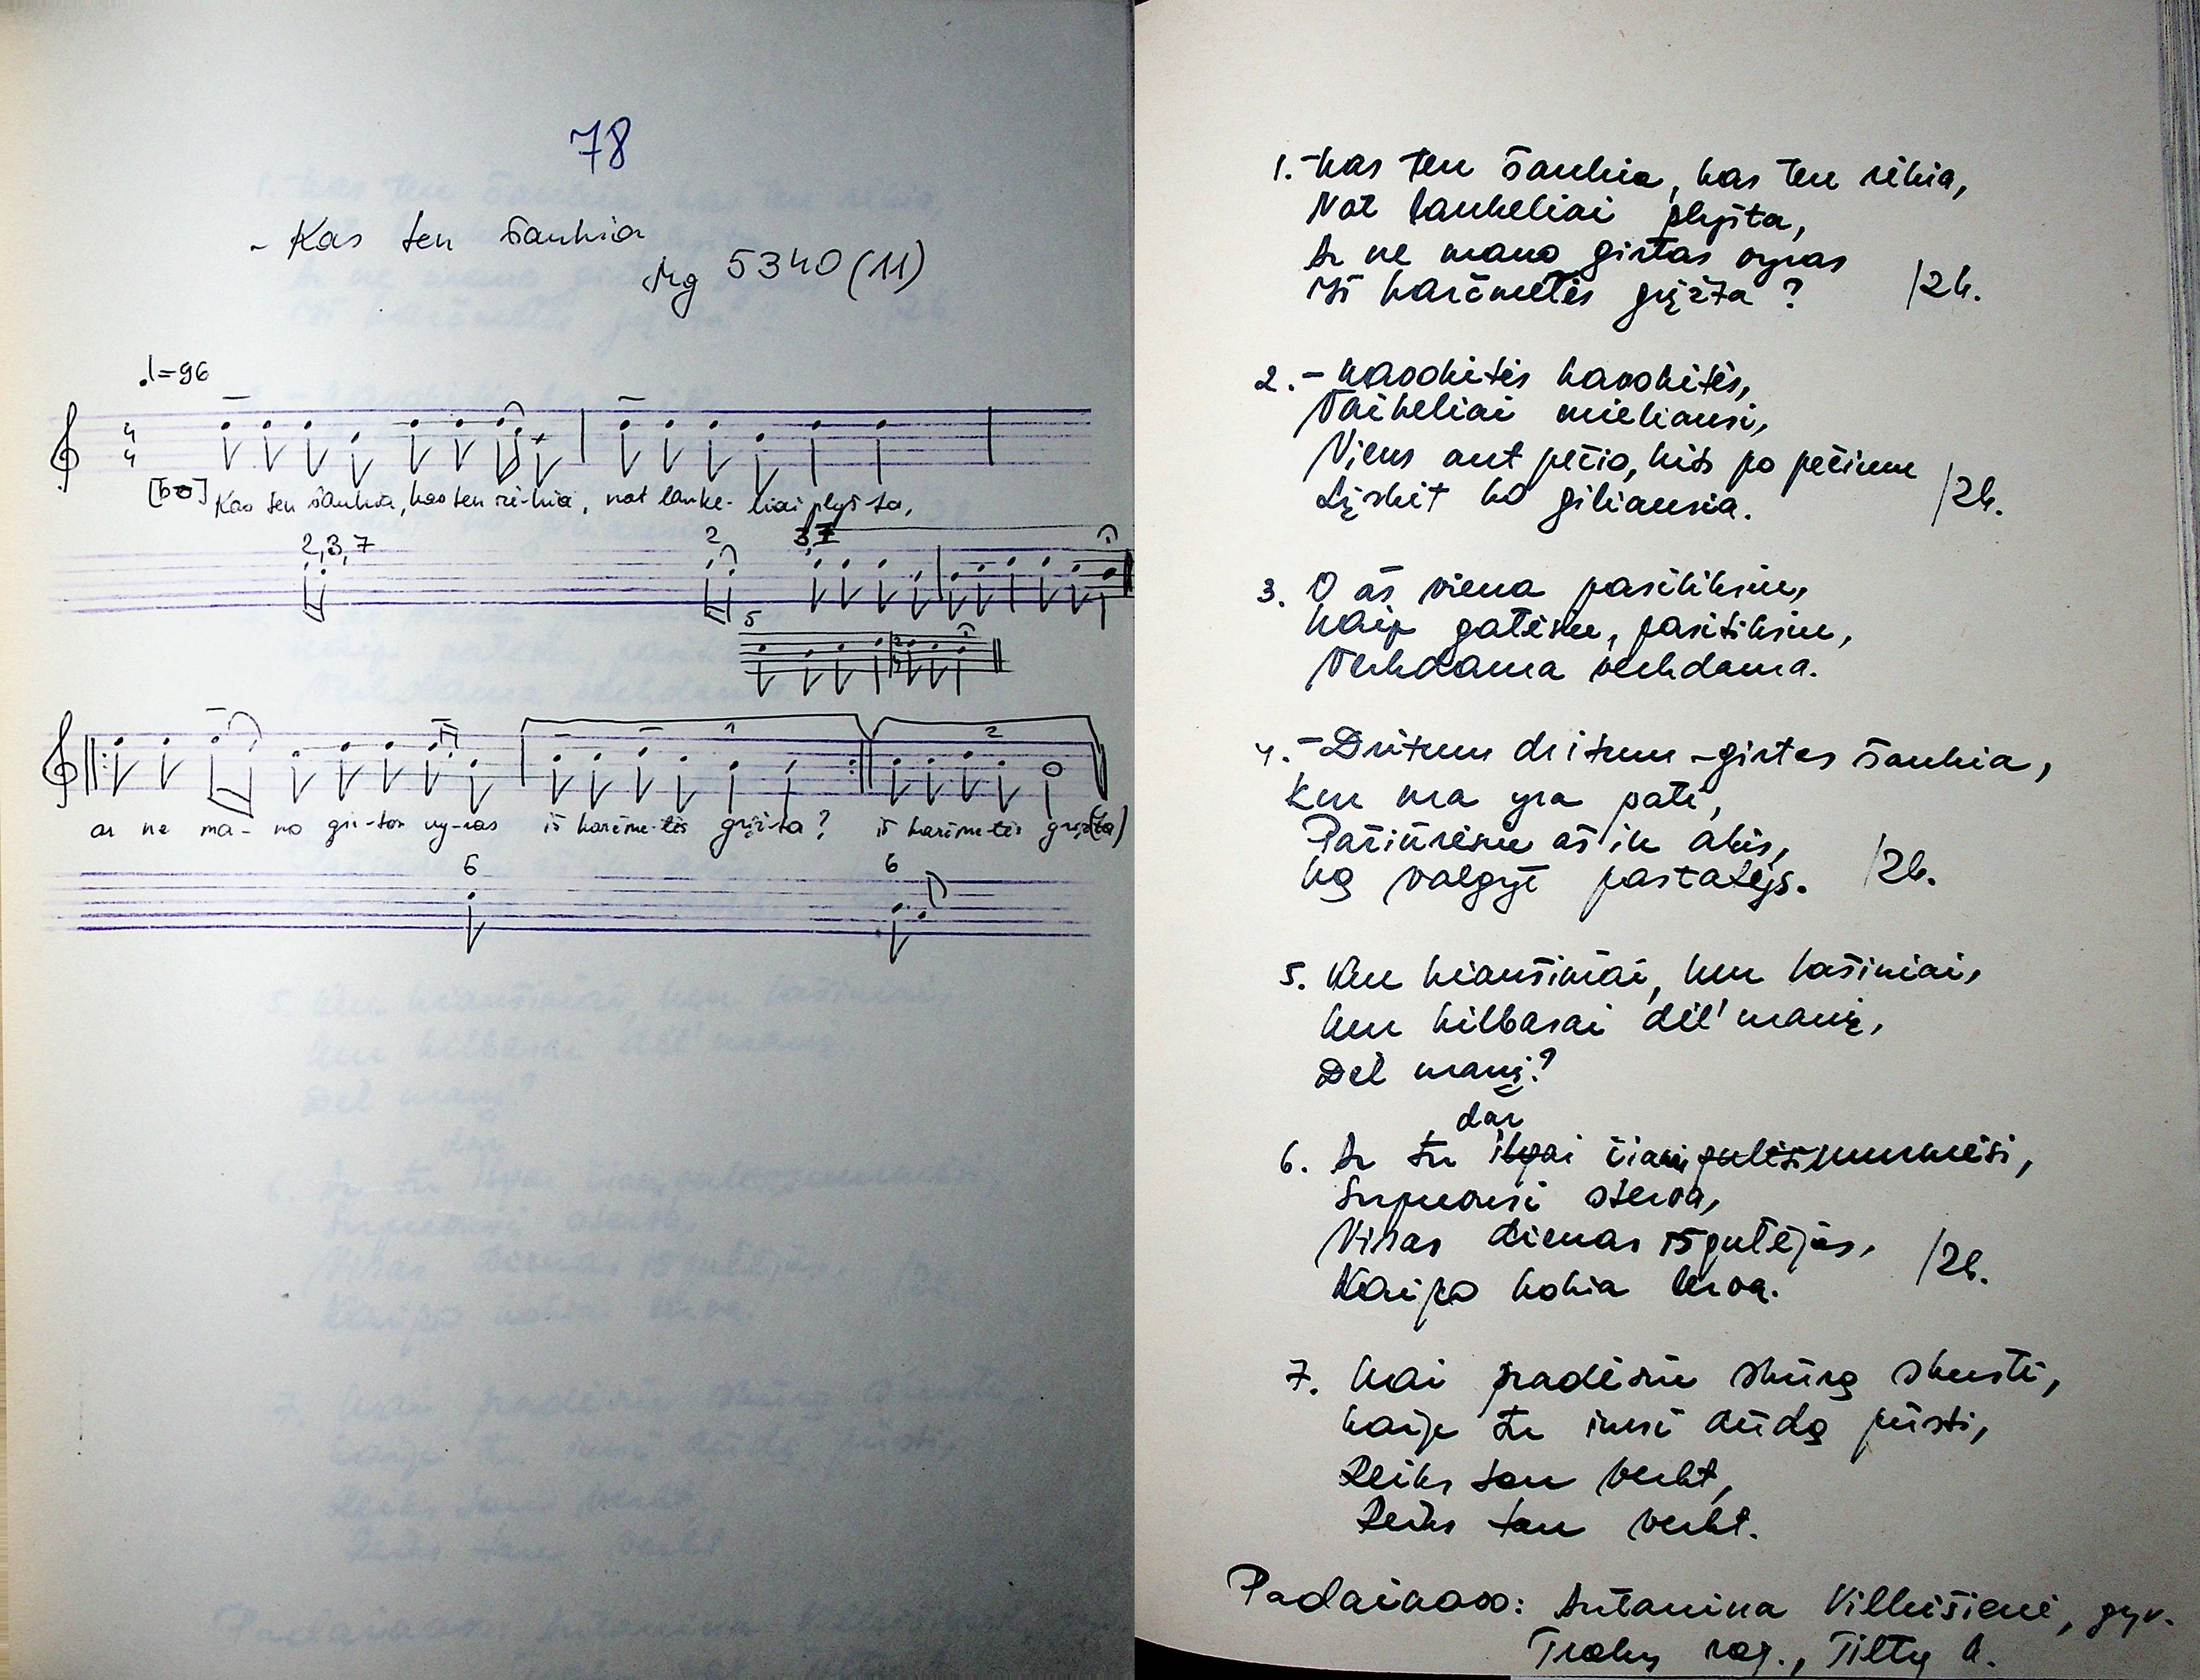 78
- Kas ten šaukia
Mg 5340 (11)
♩=96
4
4
[bo] Kas ten šaukia, kas ten rė-kia, not lauke- liai plyš-ta,
2,3,7
2
5
ar ne ma- no gir-tas vy-ras iš karčme-tės grįž-ta? iš karčme-tės grįž(ta)
1
2
6
6
1. - Kas ten šaukia, kas ten rėkia,
Not laukeliai plyšta,
Ar ne mano girtas vyras
Iš karčmetės grįžta? /2k.
2. - Kavokitės kavokitės,
Vaikeliai mieliausi,
Viens ant pečio, kits po pečium
Lįskit ko giliausia. /2k.
3. O aš viena pasiliksiu,
Kaip galėsiu, pasitiksiu,
Verkdama verkdama.
4. - Dritum dritum - girtas šaukia,
Kur ma yra pati,
Pažiūrėsiu aš in akis,
Ką valgyt pastatys. /2k.
5. Kur kiaušiniai, kur lašiniai,
Kur kilbasai dėl' manį,
Dėl manį?
dar
6. Ar tu ilgai čiam gulėsi murmėsi,
Supuvusi sterva,
Visas dienas išgulėjus,
Kaipo kokia kerva. /2k.
7. Kai pradėsiu skūrą skusti,
Kaip tu imsi dūdą pūsti,
Reiks tau verkt,
Reiks tau verkt.
Padainavo: Antanina Vilkišienė, gyv.
Trakų raj., Tiltų k.